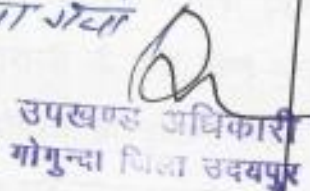 गया
उपखण्ड अधिकारी
गोगुन्दा जिला उदयपुर